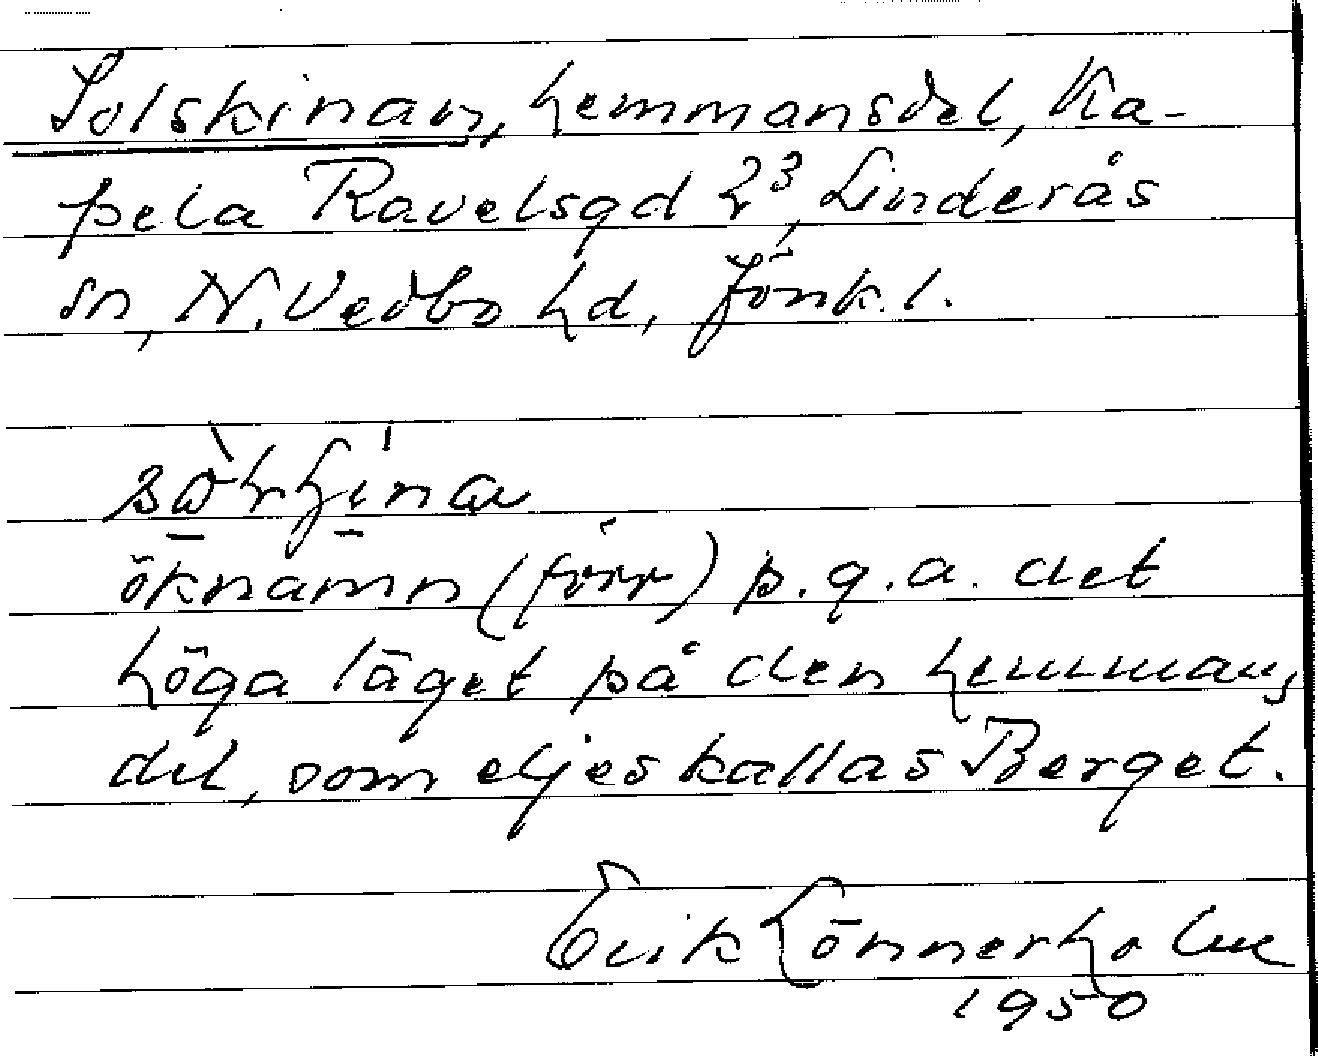 Solskinan, hemmansdel, Ka-
pela Ravelsgd 2³, Linderås
sn, N. Vedbo hd, Jönk. l.
öknamn (förr) p.g.a. det
höga läget på den hemmans
del, som eljes kallas Berget.
Erik Lönnerholm
1950